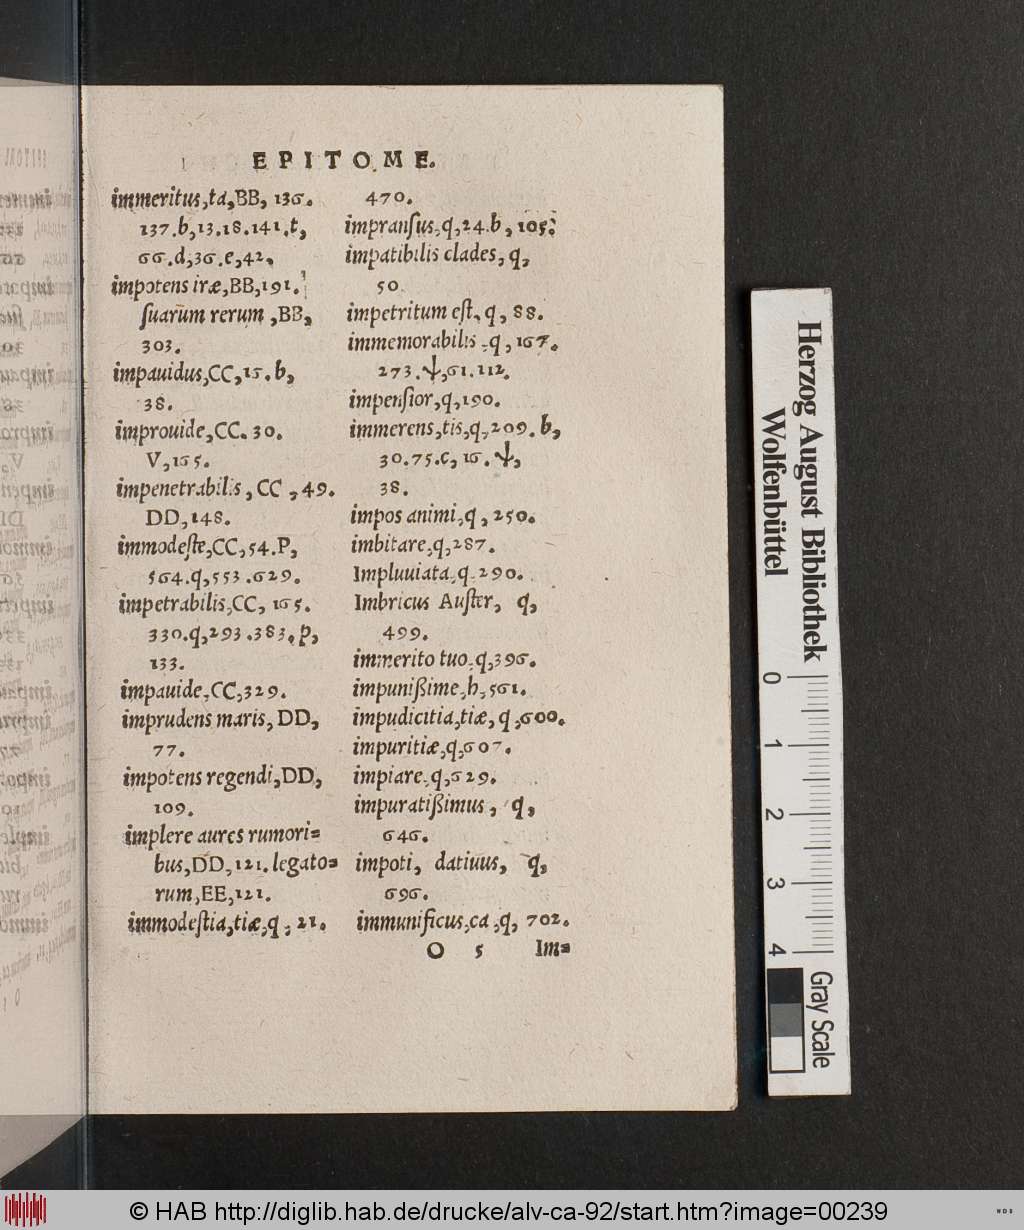 EPITOME.
immeritus,ta,BB, 136.
137.b,13.18.141.t,
66.d,36.e,42,
impotens iræ,BB,191.
suarum rerum ,BB,
303.
impauidus,CC,15.b,
38.
improuide,CC.30.
V,165.
impenetrabilis, CC ,49.
DD,148.
immodeste,CC,54.P,
564.q,553.629.
impetrabilis,CC, 165.
330.q,293.383.p,
133.
impauide,CC,329.
imprudens maris, DD,
77.
impotens regendi,DD,
109.
implere aures rumori=
bus,DD,121.legato=
rum,EE,121.
immodestia,tiæ,q,21.
470.
impransus,q,24.b,105.
impatibilis clades, q,
50.
impetritum est, q, 88.
immemorabilis ,q, 167.
273.ψ,61.112.
impensior,q,190.
immerens,tis,q,209.b,
30.75.c,16.ψ,
38.
impos animi,q, 250.
imbitare,q,287.
Impluuiata,q.290.
Imbricus Auster, q,
499.
immerito tuo,q,396.
impunißime,h,561.
impudicitia,tiæ,q,600.
impuritiæ,q,607.
impiare,q,629.
impuratißimus, q,
646.
impoti, datiuus, q,
696.
immunificus,ca,q, 702.
O 5 Im=
Herzog August Bibliothek
Wolfenbüttel
0 1 2 3 4
Gray Scale
© HAB http://diglib.hab.de/drucke/alv-ca-92/start.htm?image=00239